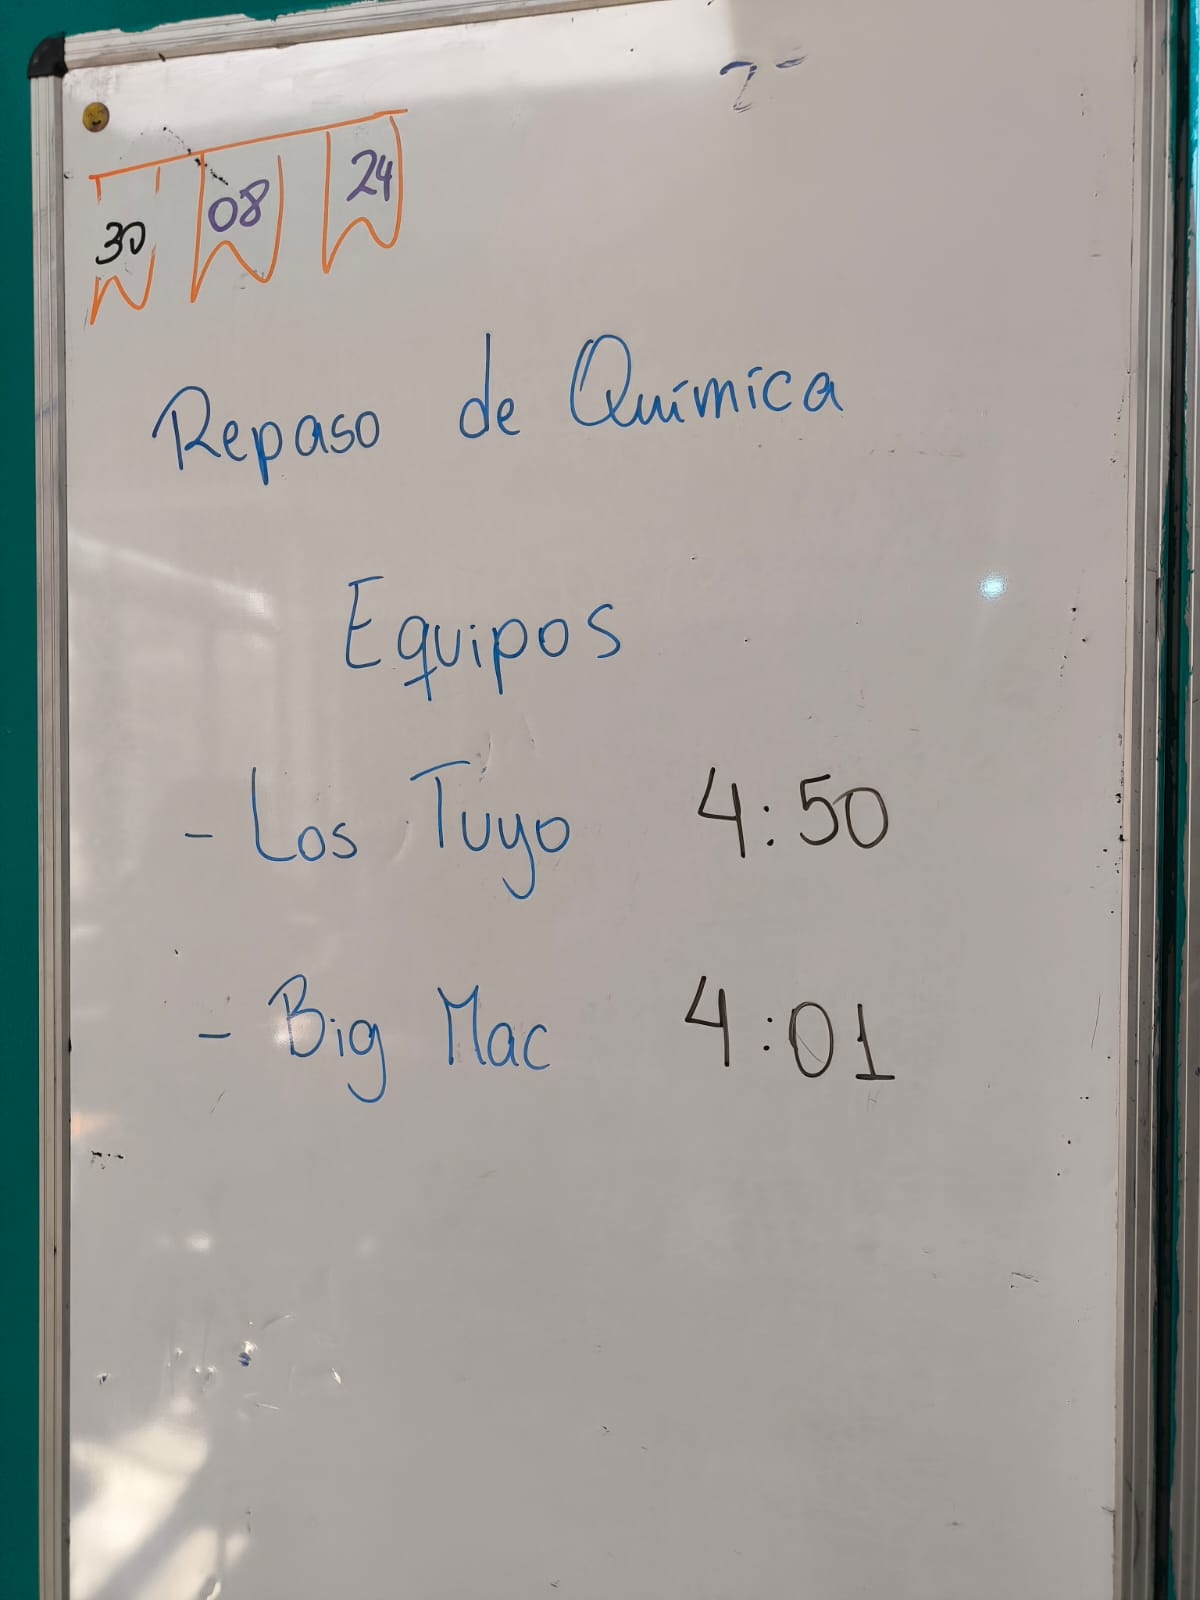 30 08 24
Repaso de Química
Equipos
- Los Tuyo 4:50
- Big Mac 4:01